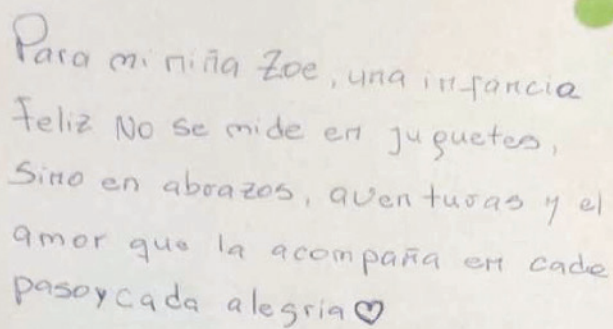 Para mi niña Zoe, una infancia
feliz No se mide en juguetes,
Sino en abrazos, aventuras y el
amor que la acompaña en cada
paso y cada alegria ♡